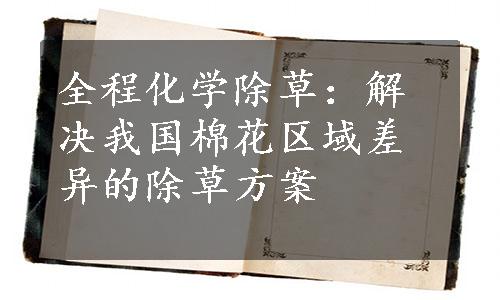 全程化学除草：解
决我国棉花区域差
异的除草方案